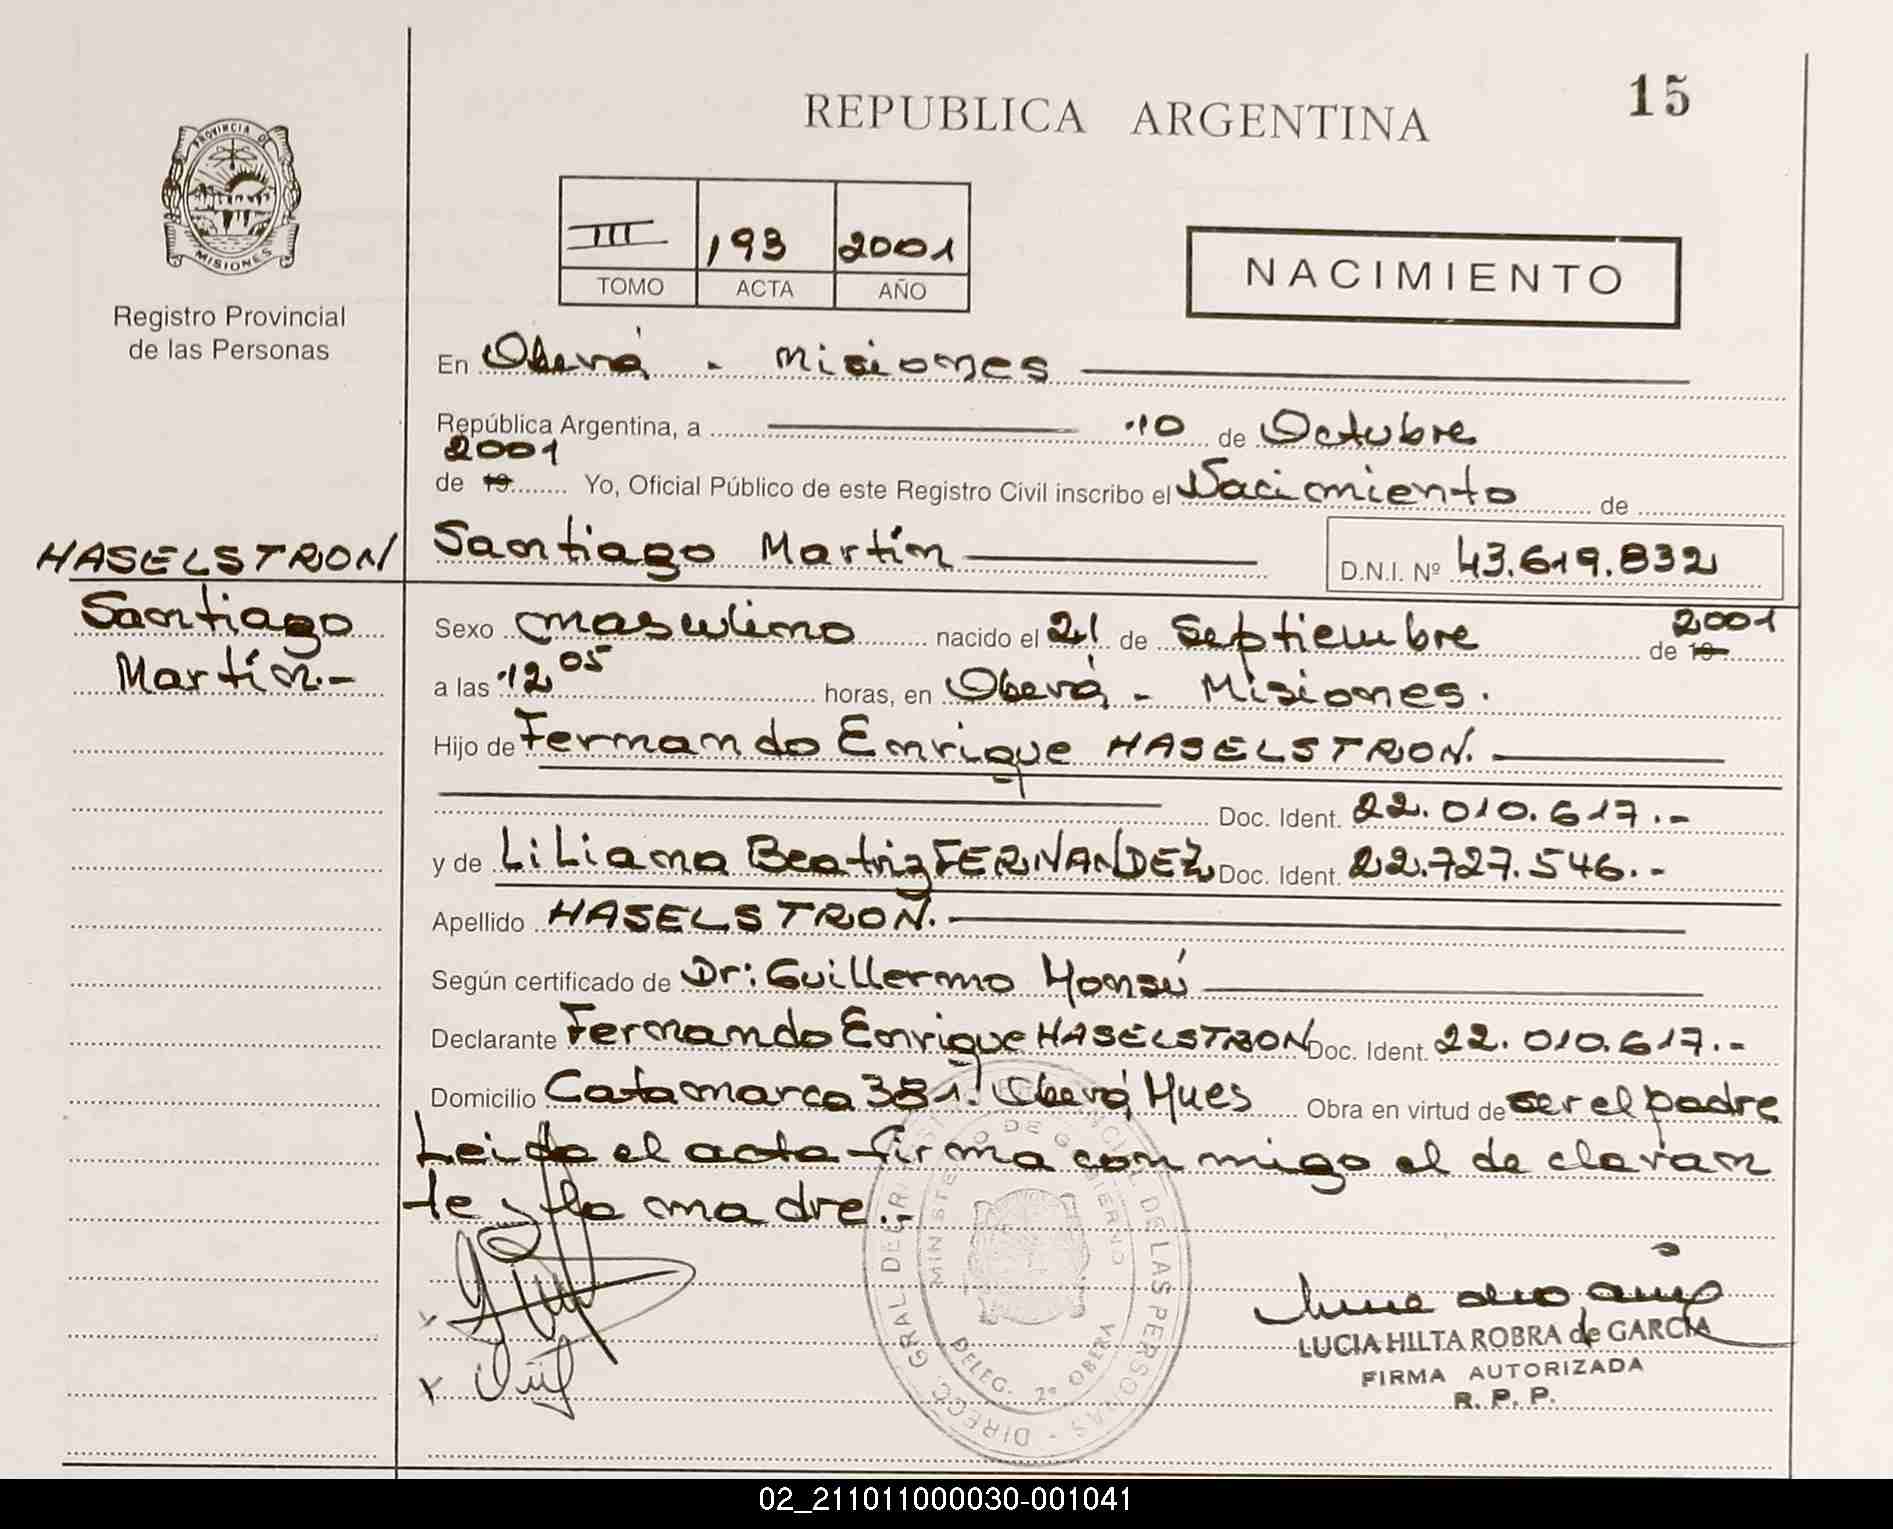 15
REPUBLICA ARGENTINA
PROVINCIA DE
MISIONES
Registro Provincial
de las Personas
III 193 2001
TOMO ACTA AÑO
NACIMIENTO
En Oberá - Misiones
República Argentina, a 10 de Octubre
2001
de 19 Yo, Oficial Público de este Registro Civil inscribo el Nacimiento de
HASELSTRON
Santiago
Martín.-
Santiago Martín D.N.I. Nº 43.619.832
Sexo masculino nacido el 21 de Septiembre de 19 2001
a las 12 05 horas, en Oberá - Misiones.
Hijo de Fernando Enrique HASELSTRON.
Doc. Ident. 22.010.617.-
y de Liliana Beatriz FERNANDEZ Doc. Ident. 22.727.546.-
Apellido HASELSTRON.
Según certificado de Dr: Guillermo Monsú
Declarante Fernando Enrique HASELSTRON Doc. Ident. 22.010.617.-
Domicilio Catamarca 381. Oberá Mnes Obra en virtud de ser el padre
Leida el acta firma conmigo el declaran
te y la madre.-
DIRECC. GRAL DE REGISTRO PROVINCIAL DE LAS PERSONAS
MINISTERIO DE GOBIERNO
DELEG. 2ª OBERA
LUCIA HILTA ROBRA de GARCIA
FIRMA AUTORIZADA
R. P. P.
02_211011000030-001041